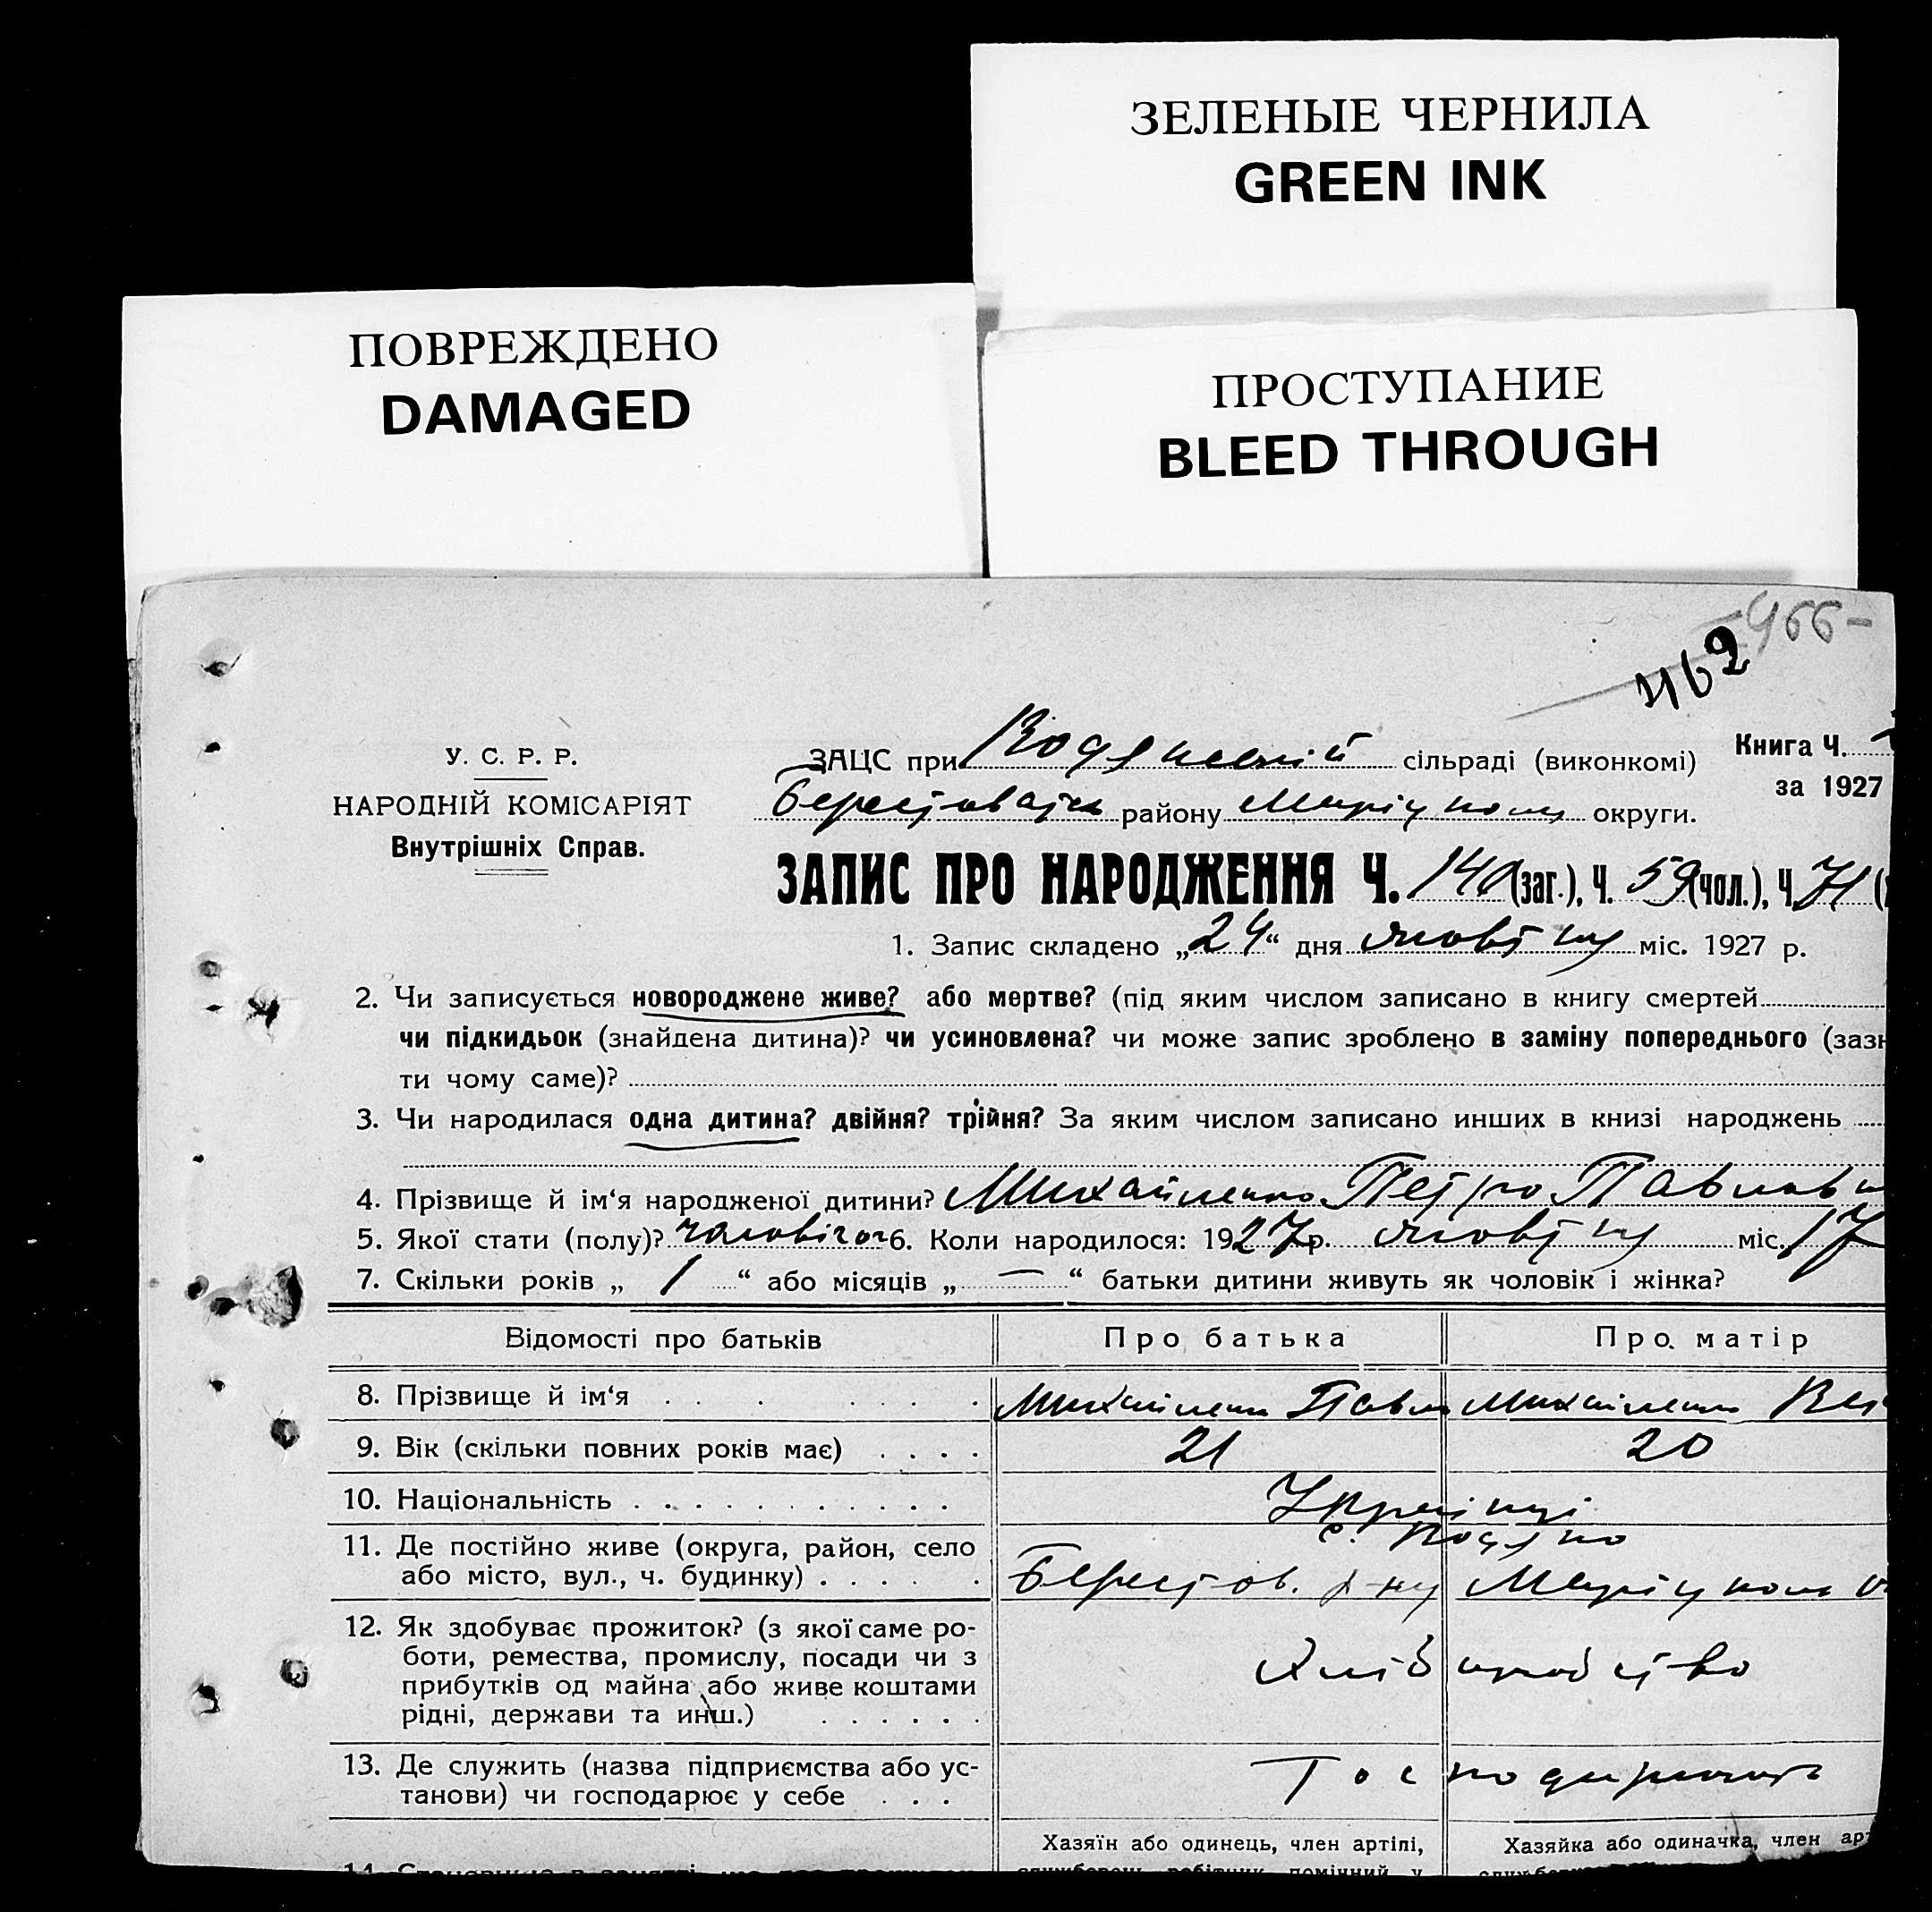 ЗЕЛЕНЫЕ ЧЕРНИЛА
GREEN INK
ПОВРЕЖДЕНО
DAMAGED
ПРОСТУПАНИЕ
BLEED THROUGH
-466-
462
У. С. Р. Р.
НАРОДНІЙ КОМІСАРІЯТ
Внутрішніх Справ.
ЗАЦС при сільраді (виконкомі)
Книга Ч.
за 1927
району округи.
ЗАПИС ПРО НАРОДЖЕННЯ Ч. 140 (заг.), Ч. 59 (чол.), Ч. 71
1. Запис складено „24“ дня жовтня міс. 1927 р.
2. Чи записується новороджене живе? або мертве? (під яким числом записано в книгу смертей
чи підкидьок (знайдена дитина)? чи усиновлена? чи може запис зроблено в заміну попереднього (зазн
ти чому саме)?
3. Чи народилася одна дитина? двійня? трійня? За яким числом записано инших в книзі народжень
4. Прізвище й ім‘я народженої дитини? Михайленко Петро Павлов
5. Якої стати (полу)? чоловічої 6. Коли народилося: 1927 р. жовтня міс. 17
7. Скільки років „ 1 “ або місяців „ — “ батьки дитини живуть як чоловік і жінка?
Відомості про батьків Про батька Про матір
8. Прізвище й ім‘я . . . . . . . Михайленко Павло Михайленко
9. Вік (скільки повних років має) . . . . 21 20
10. Національність . . . . . . . . . . . . Українці
11. Де постійно живе (округа, район, село
або місто, вул., ч. будинку) . . . . . Берестов. р-ну
12. Як здобуває прожиток? (з якої саме ро-
боти, ремества, промислу, посади чи з
прибутків од майна або живе коштами
рідні, держави та инш.) . . . . . .
Хліборобство
13. Де служить (назва підприємства або ус-
танови) чи господарює у себе . . .
Господарюють
Хазяїн або одинець, член артілі,
Хазяйка або одиначка, член арт